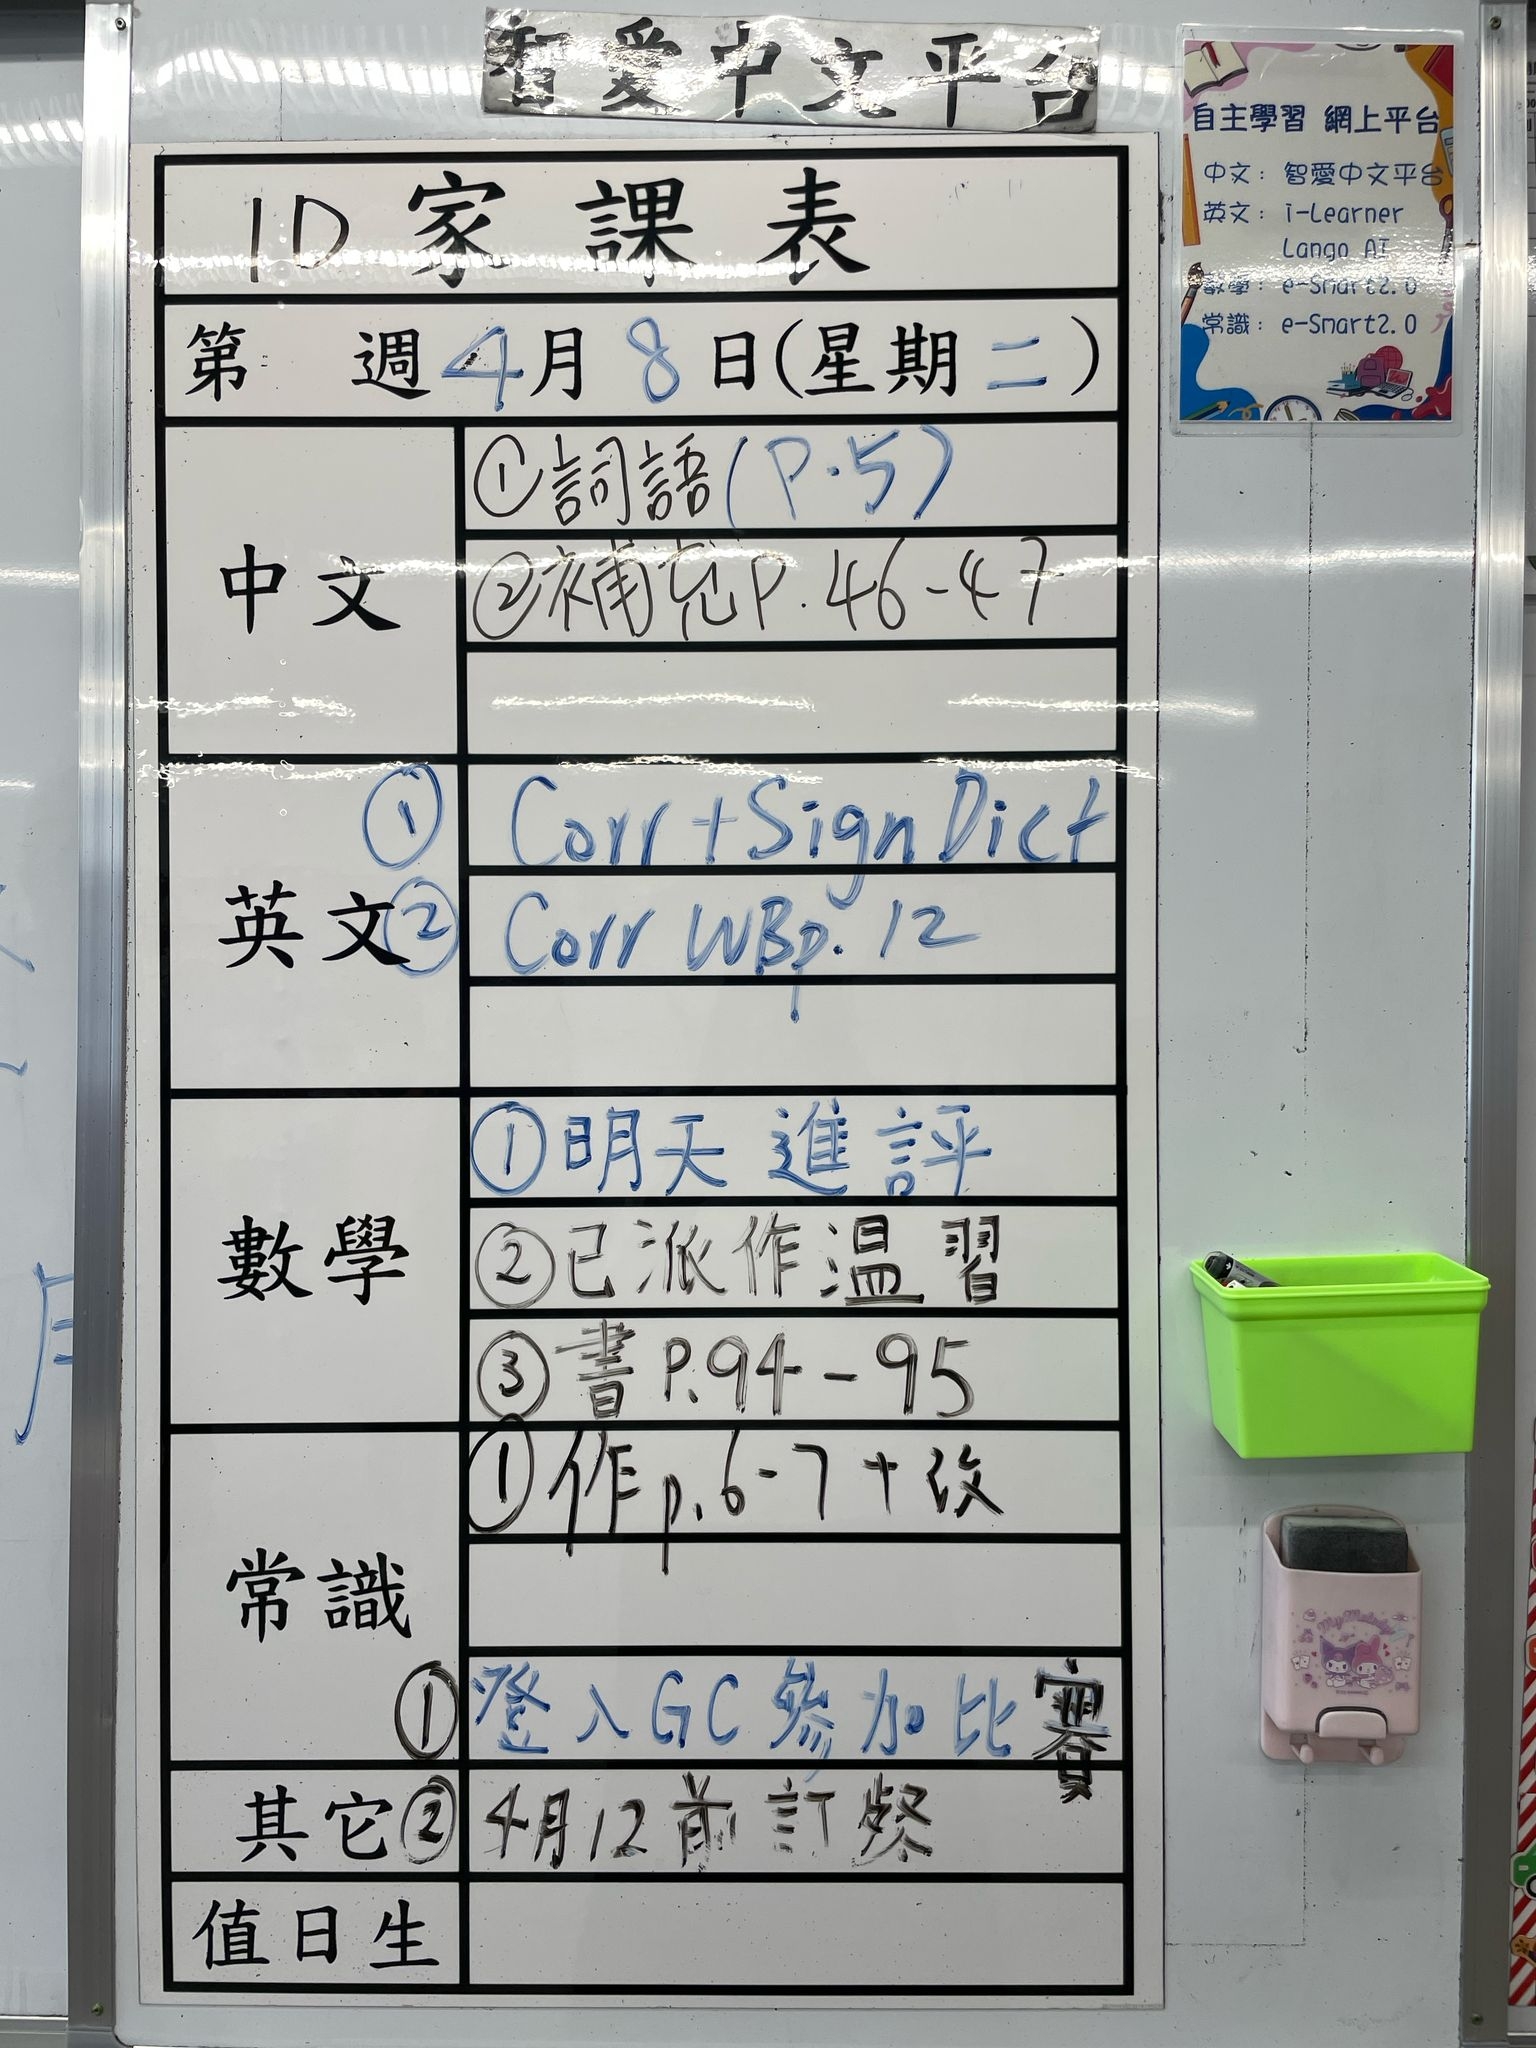 智愛中文平台
自主學習 網上平台
中文：智愛中文平台
英文：i-Learner
Lango AI
數學：e-Smart2.0
常識：e-Smart2.0
1D 家課表
第 週 4月8日(星期二)
中文
①詞語(P.5)
②補充P.46-47
英文
① Corr+Sign Dict
② Corr WBp.12
數學
①明天進評
②已派作溫習
③書P.94-95
常識
①作p.6-7+改
其它
①登入GC參加比賽
②4月12前訂餐
值日生
My Melody
月